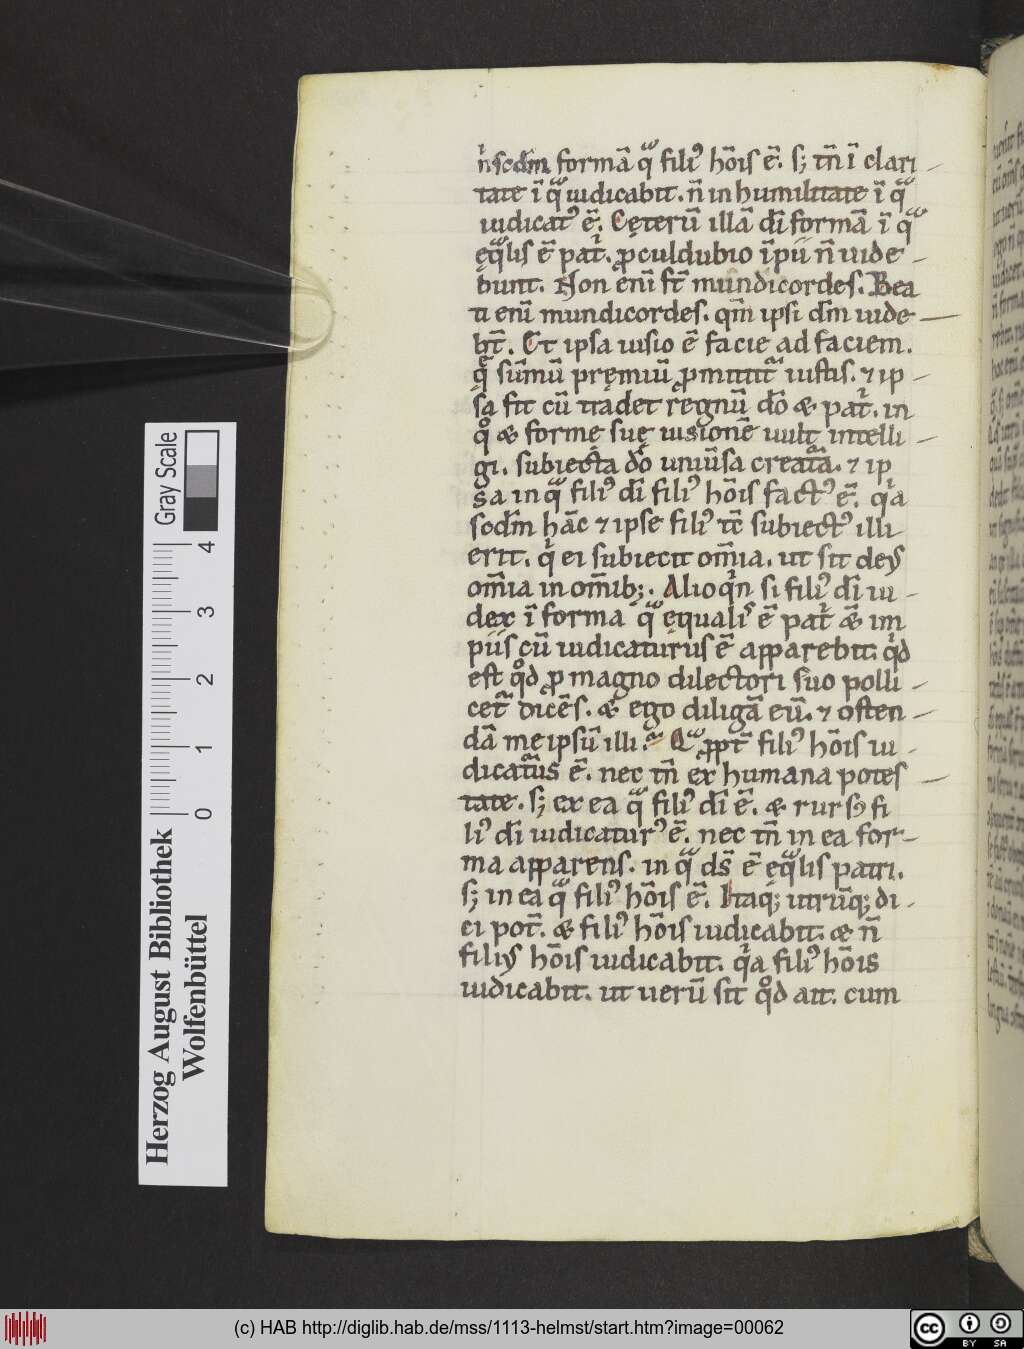 n̄ scd̄m formā q̄ fili᷒ hōis ē. s; tn̄ ī clari
tate ī q̄ iudicabit. n̄ in humilitate ī q̄
iudicat᷒ ē. Cęterū illā dī formā ī q̄
ęq̄lis ē pat̄. ꝓculdubio īpii n̄ uide
bunt. Non enī st̄ mundicordes. Bea
ti enī mundicordes. qm̄ ipsi dm̄ uide
bt̄. Et ipsa uisio ē facie ad faciem.
q̄ sūmū pręmiū ꝓmittit̄ iustis. ⁊ ip
sa fit cū tradet regnū dō & pat̄. in
q̊ & formę suę uisionē uult intelli
gi. subiecta dō uniūsa creat̄a. ⁊ ip
sa in q̄ fili᷒ dī fili᷒ hōis fact᷒ ē. qͥa
scd̄m hāc ⁊ ipse fili᷒ tc̄ subiect᷒ illi
erit. qͥ ei subiecit om̄ia. ut sit deꝰ
om̄ia in om̄ib;. Alioqͥn si fili᷒ dī iu
dex ī forma q̄ ęquali᷒ ē pat̄ &̄ im
piis cū iudicaturus ē apparebit. qͥd
est qͦd ꝓ magno dilectori suo polli
cet̄ dicēs. & ego diligā eū. ⁊ osten
dā meipsū illi. Q ꝓpt̄ fili᷒ hōis iu
dicat̄us ē. nec tn̄ ex humana potes
tate. s; ex ea q̄ fili᷒ dī ē. & rursꝰ fi
li᷒ dī iudicatur᷒ ē. nec tn̄ in ea for
ma apparens. in q̄ ds̄ ē ęq̄lis patri.
s; in ea q̄ fili᷒ hōis ē. Itaq; utrūq; di
ci pot̄. & fili᷒ hōis iudicabit. & n̄
filiꝰ hōis iudicabit. qͥa fili᷒ hōis
iudicabit. ut uerū sit qͦd ait. cum
Gray Scale
0 1 2 3 4
Herzog August Bibliothek
Wolfenbüttel
(c) HAB http://diglib.hab.de/mss/1113-helmst/start.htm?image=00062
cc BY SA